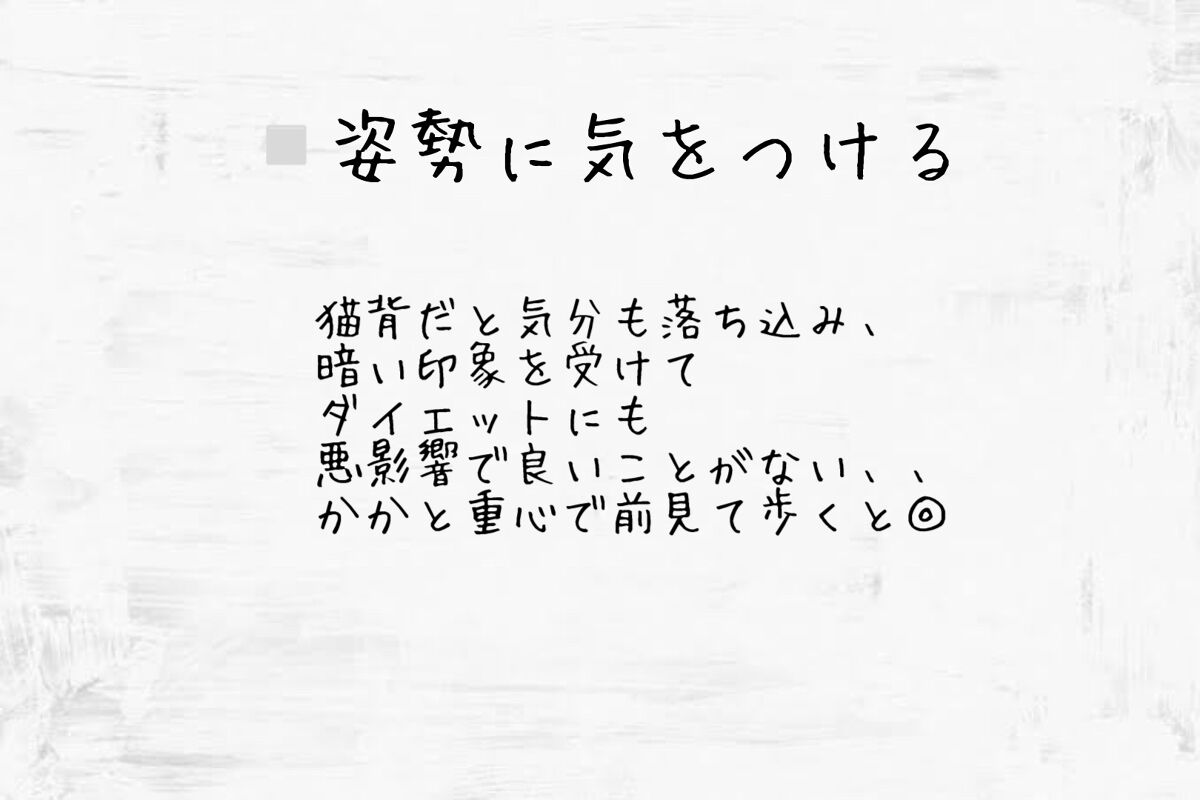 姿勢に気をつける
猫背だと気分も落ち込み、
暗い印象を受けて
ダイエットにも
悪影響で良いことがない、、
かかと重心で前見て歩くと◎